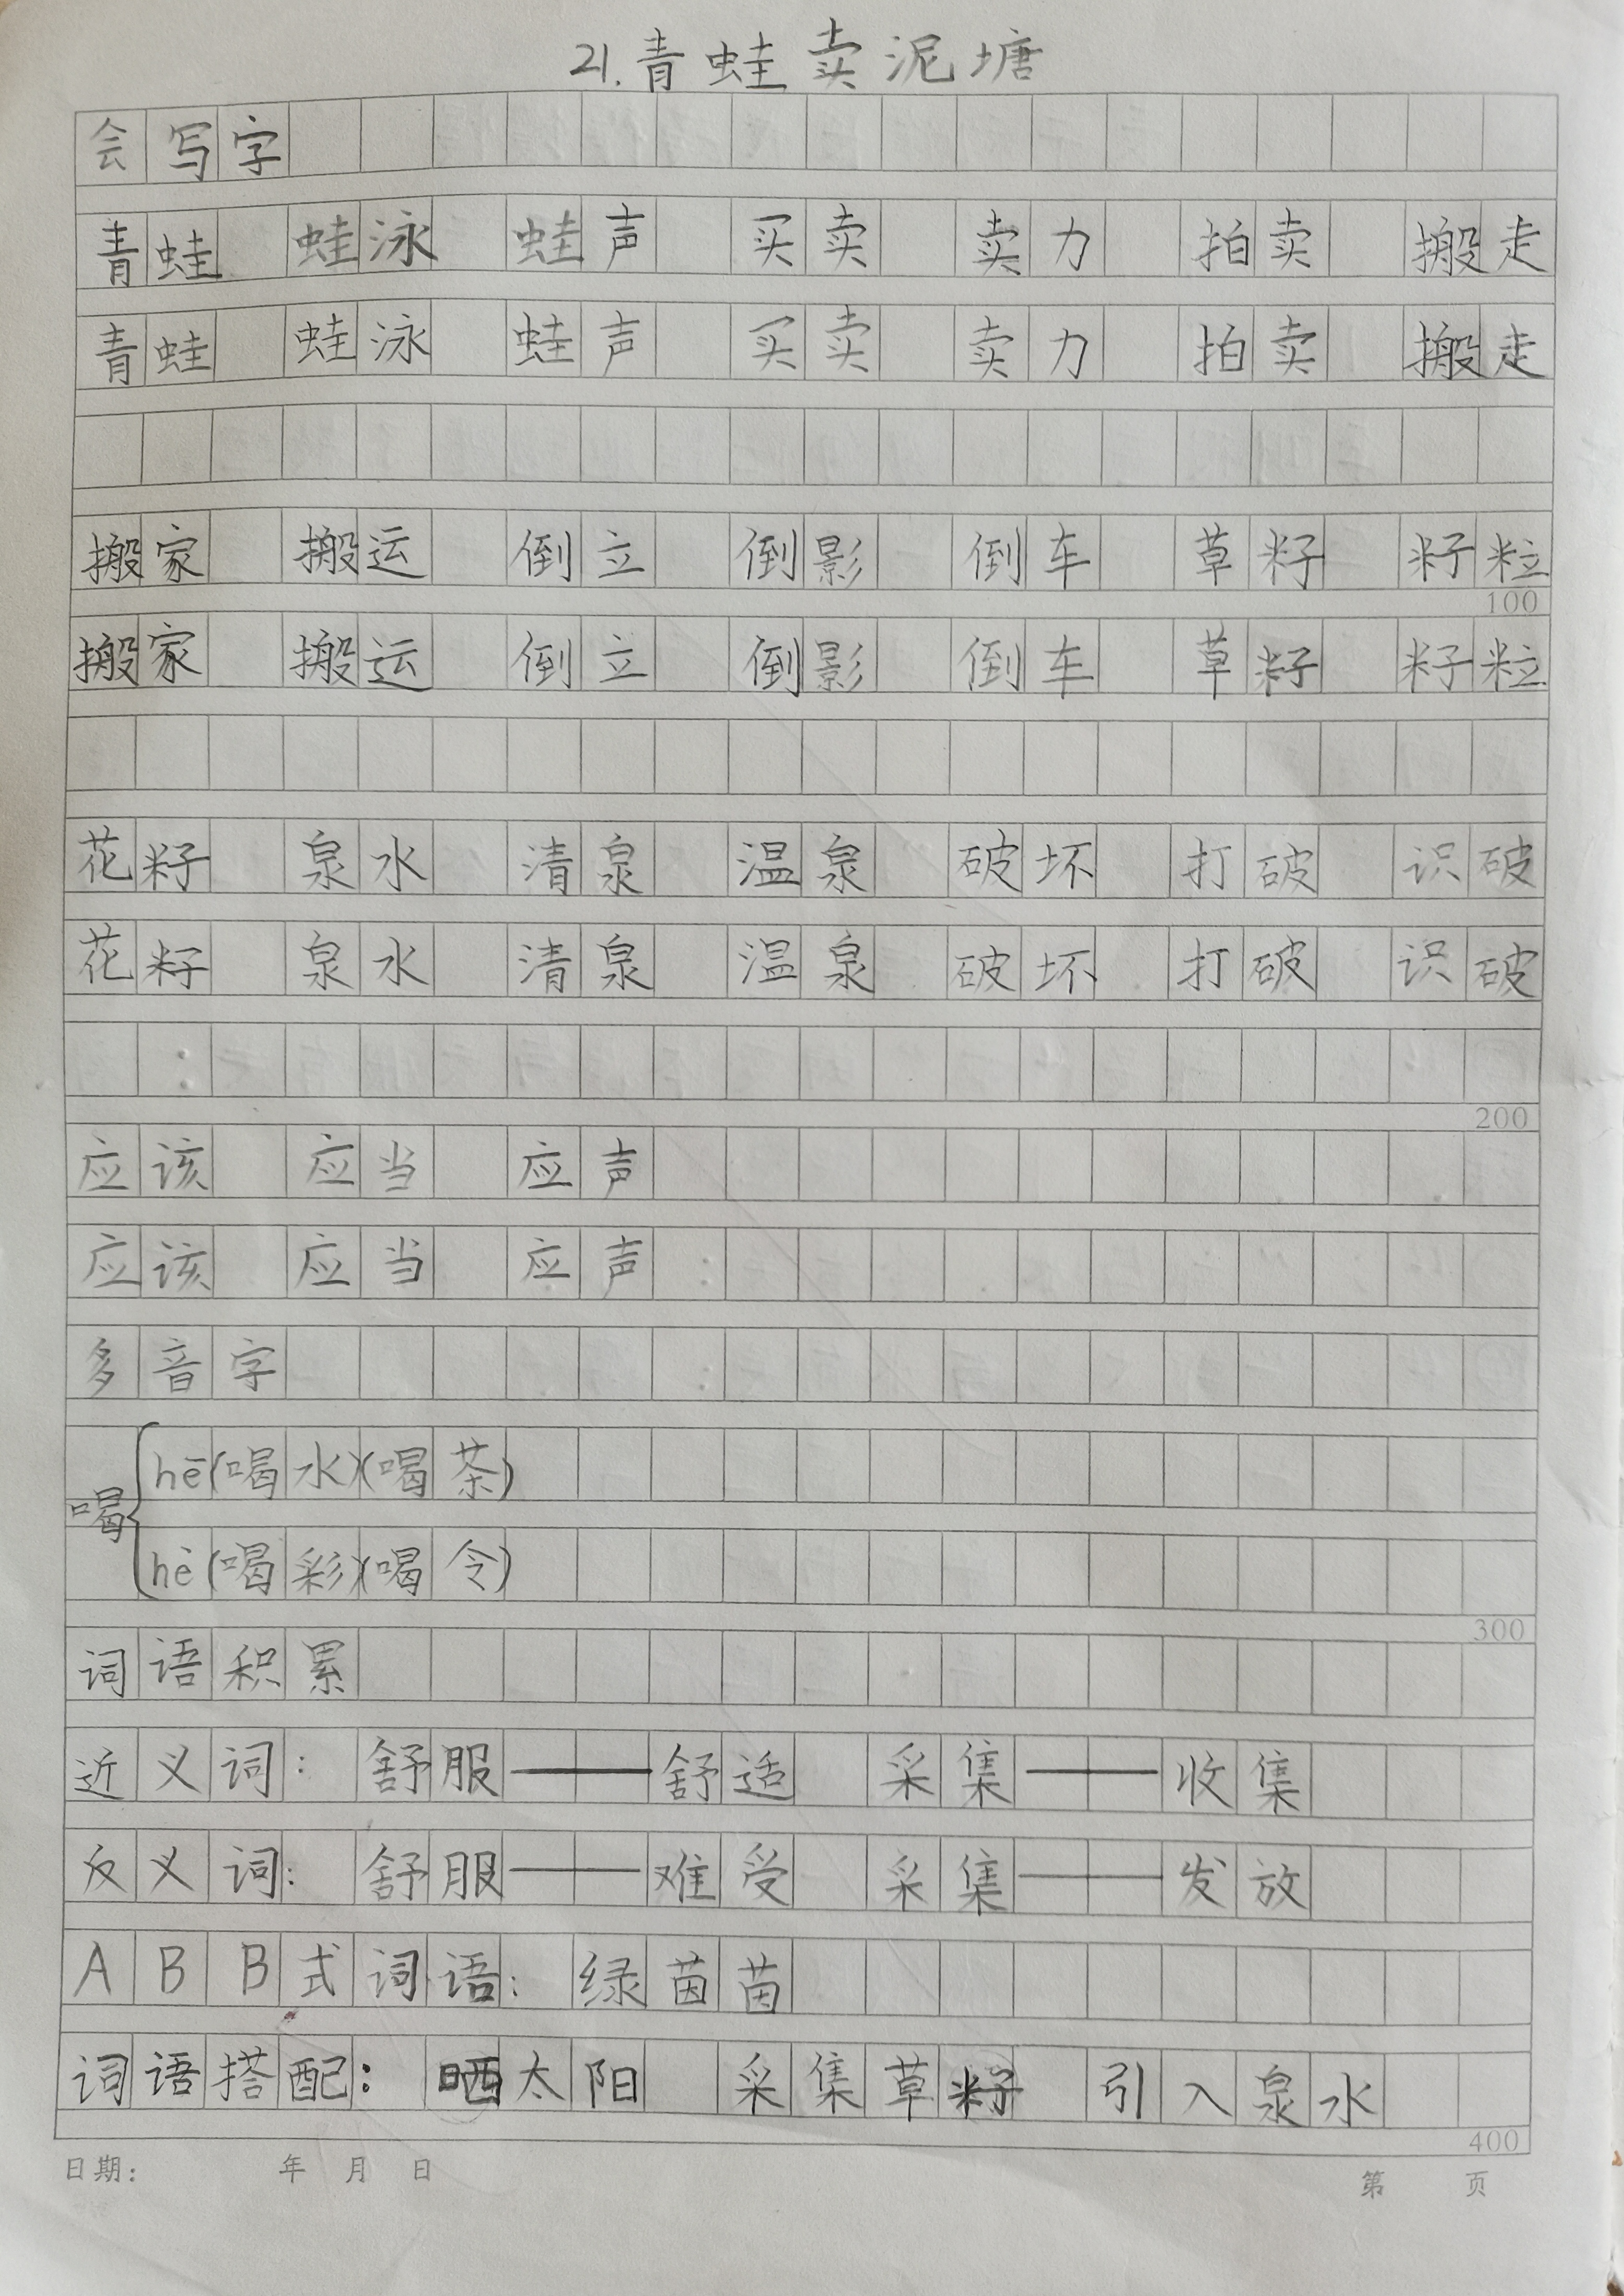 21.青蛙卖泥塘
会写字
青蛙 蛙泳 蛙声 买卖 卖力 拍卖 搬走
青蛙 蛙泳 蛙声 买卖 卖力 拍卖 搬走
搬家 搬运 倒立 倒影 倒车 草籽 籽粒
100
搬家 搬运 倒立 倒影 倒车 草籽 籽粒
花籽 泉水 清泉 温泉 破坏 打破 识破
花籽 泉水 清泉 温泉 破坏 打破 识破
200
应该 应当 应声
应该 应当 应声
多音字
喝
hē(喝水)(喝茶)
hè(喝彩)(喝令)
300
词语积累
近义词: 舒服——舒适 采集——收集
反义词: 舒服——难受 采集——发放
ABB式词语: 绿茵茵
词语搭配: 晒太阳 采集草籽 引入泉水
400
日期: 年 月 日 第 页